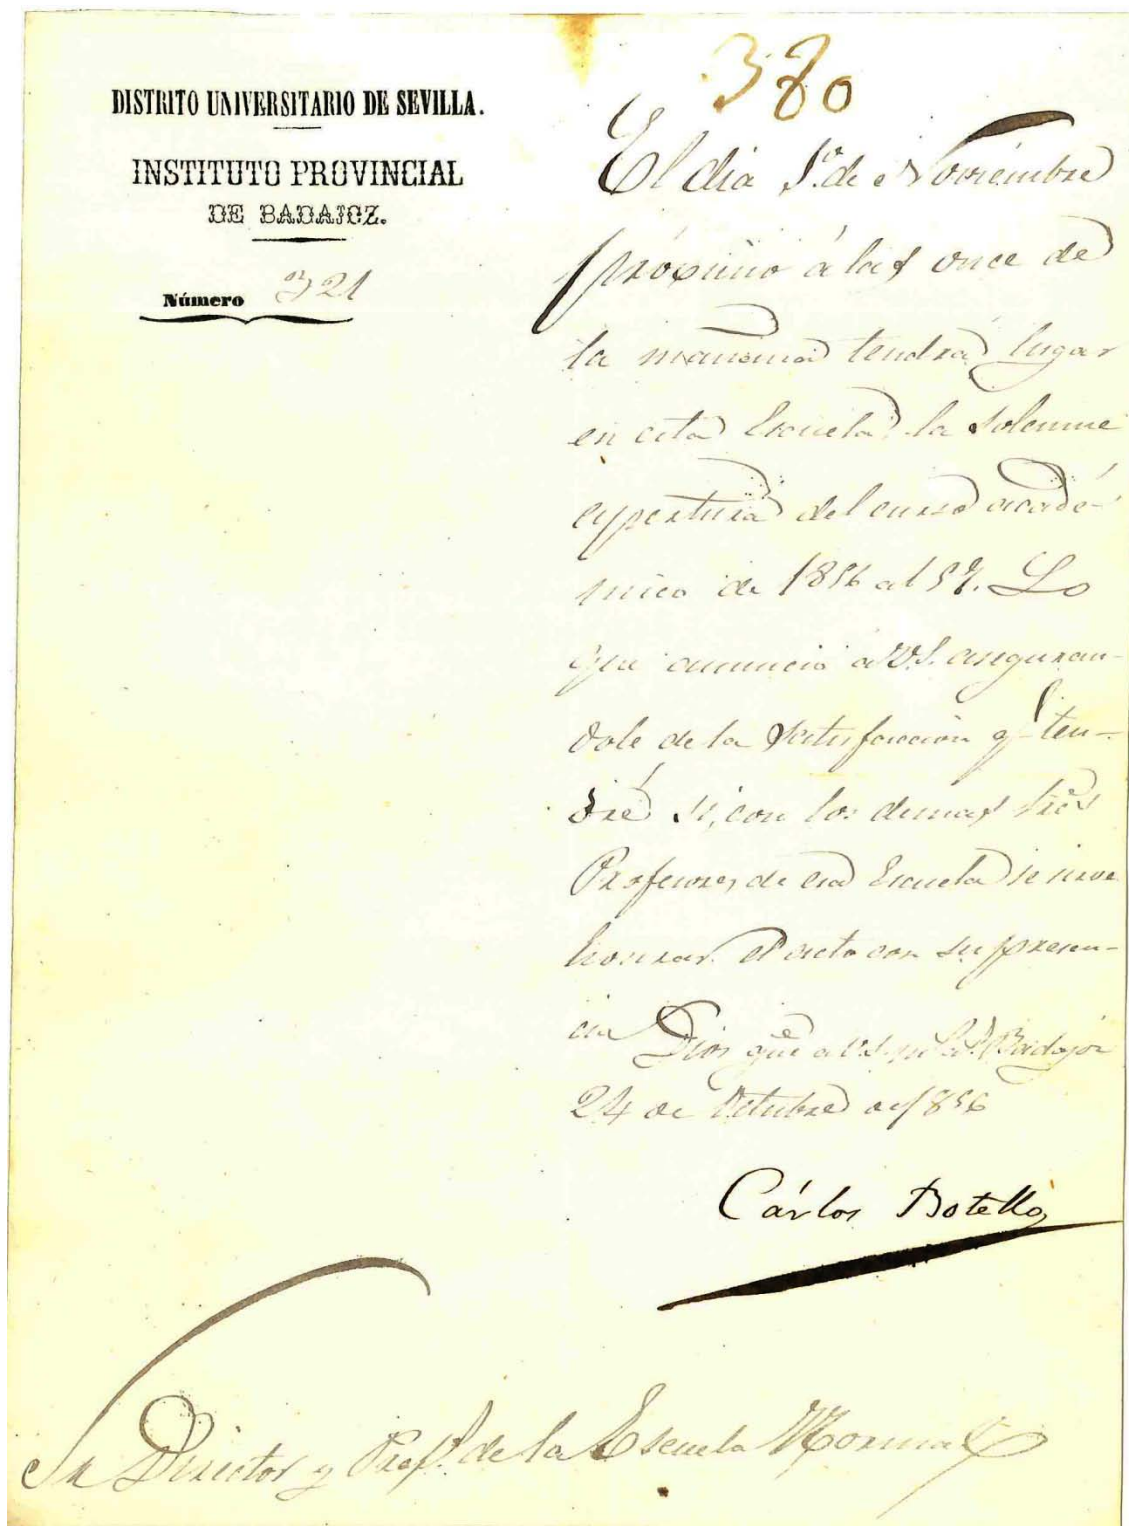 380
DISTRITO UNIVERSITARIO DE SEVILLA.
INSTITUTO PROVINCIAL
DE BADAJOZ.
Número 321
El dia 1.º de Noviembre
próximo á las once de
la mañana tendrá lugar
en esta Escuela la solemne
apertura del curso acadé-
mico de 1856 al 57. Lo
que anuncio á V.S. aseguran-
dole de la satisfaccion q.e ten-
dré si, con los demas Sres
Profesores de esa Escuela se sirve
honrar el acto con su presen-
cia
Dios gue a V.S. m.s a.s Badajoz
24 de Octubre de 1856
Cárlos Botello
Sr Director y Prof.s de la Escuela Normal